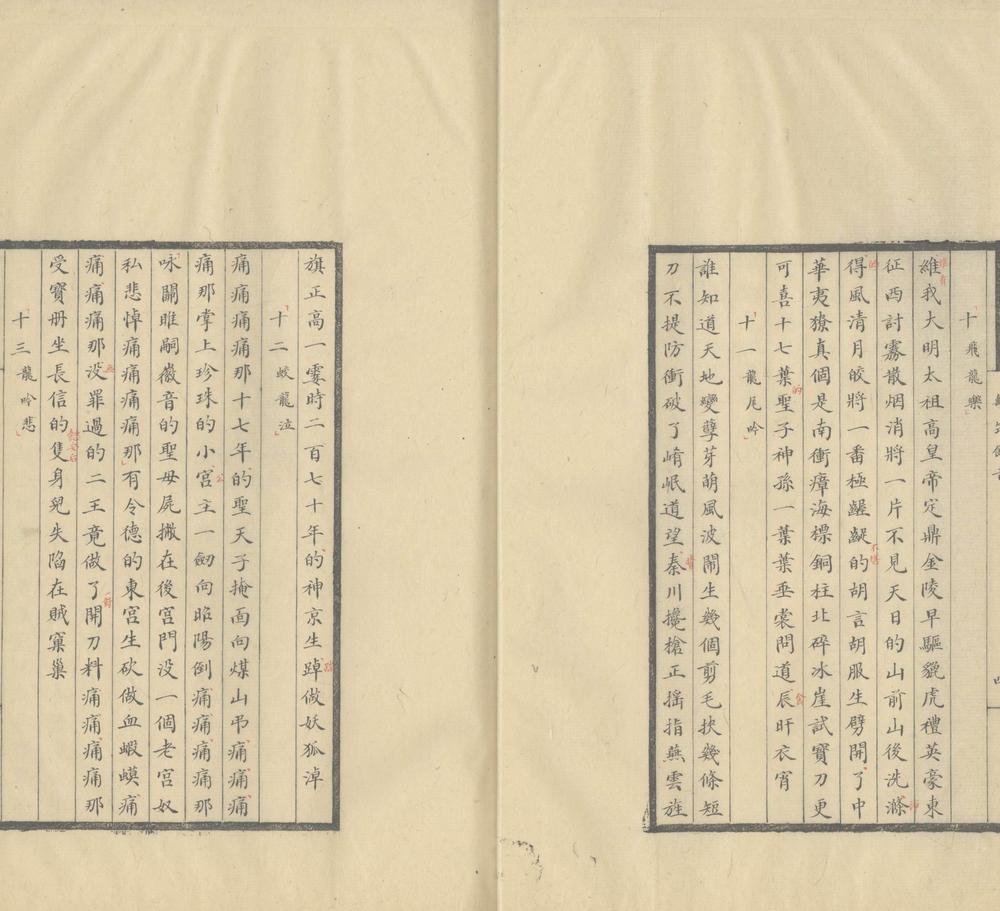 十飛龍樂
維我大明太祖高皇帝定鼎金陵早驅貔虎禮英豪東
征西討霧散烟消將一片不見天日的山前山後洗滌
得風清月皎將一番極齷齪的胡言胡服生劈開了中
華夷獠真個是南衝瘴海標銅柱北碎冰崖試寶刀更
可喜十七葉聖子神孫一葉葉垂裳問道辰旰衣宵
十一龍尾吟
誰知道天地變孽芽萌風波鬧生幾個剪毛挾幾條短
刀不提防衝破了崤岷道望秦川攙槍正搖指燕雲旌
旗正高一霎時二百七十年的神京生踔做妖狐淖
十二蛟龍泣
痛痛痛痛那十七年的聖天子掩面向煤山弔痛痛痛
痛那掌上珍珠的小宮主一劎向昭陽倒痛痛痛痛那
咏關雎嗣徽音的聖母屍搬在後宮門没一個老宮奴
私悲悼痛痛痛痛那有令德的東宮生砍做血蝦蟆痛
痛痛痛那没罪過的二王竟做了開刀料痛痛痛痛那
受寶册坐長信的隻身兒失陷在賊窠巢
十三龍吟悲